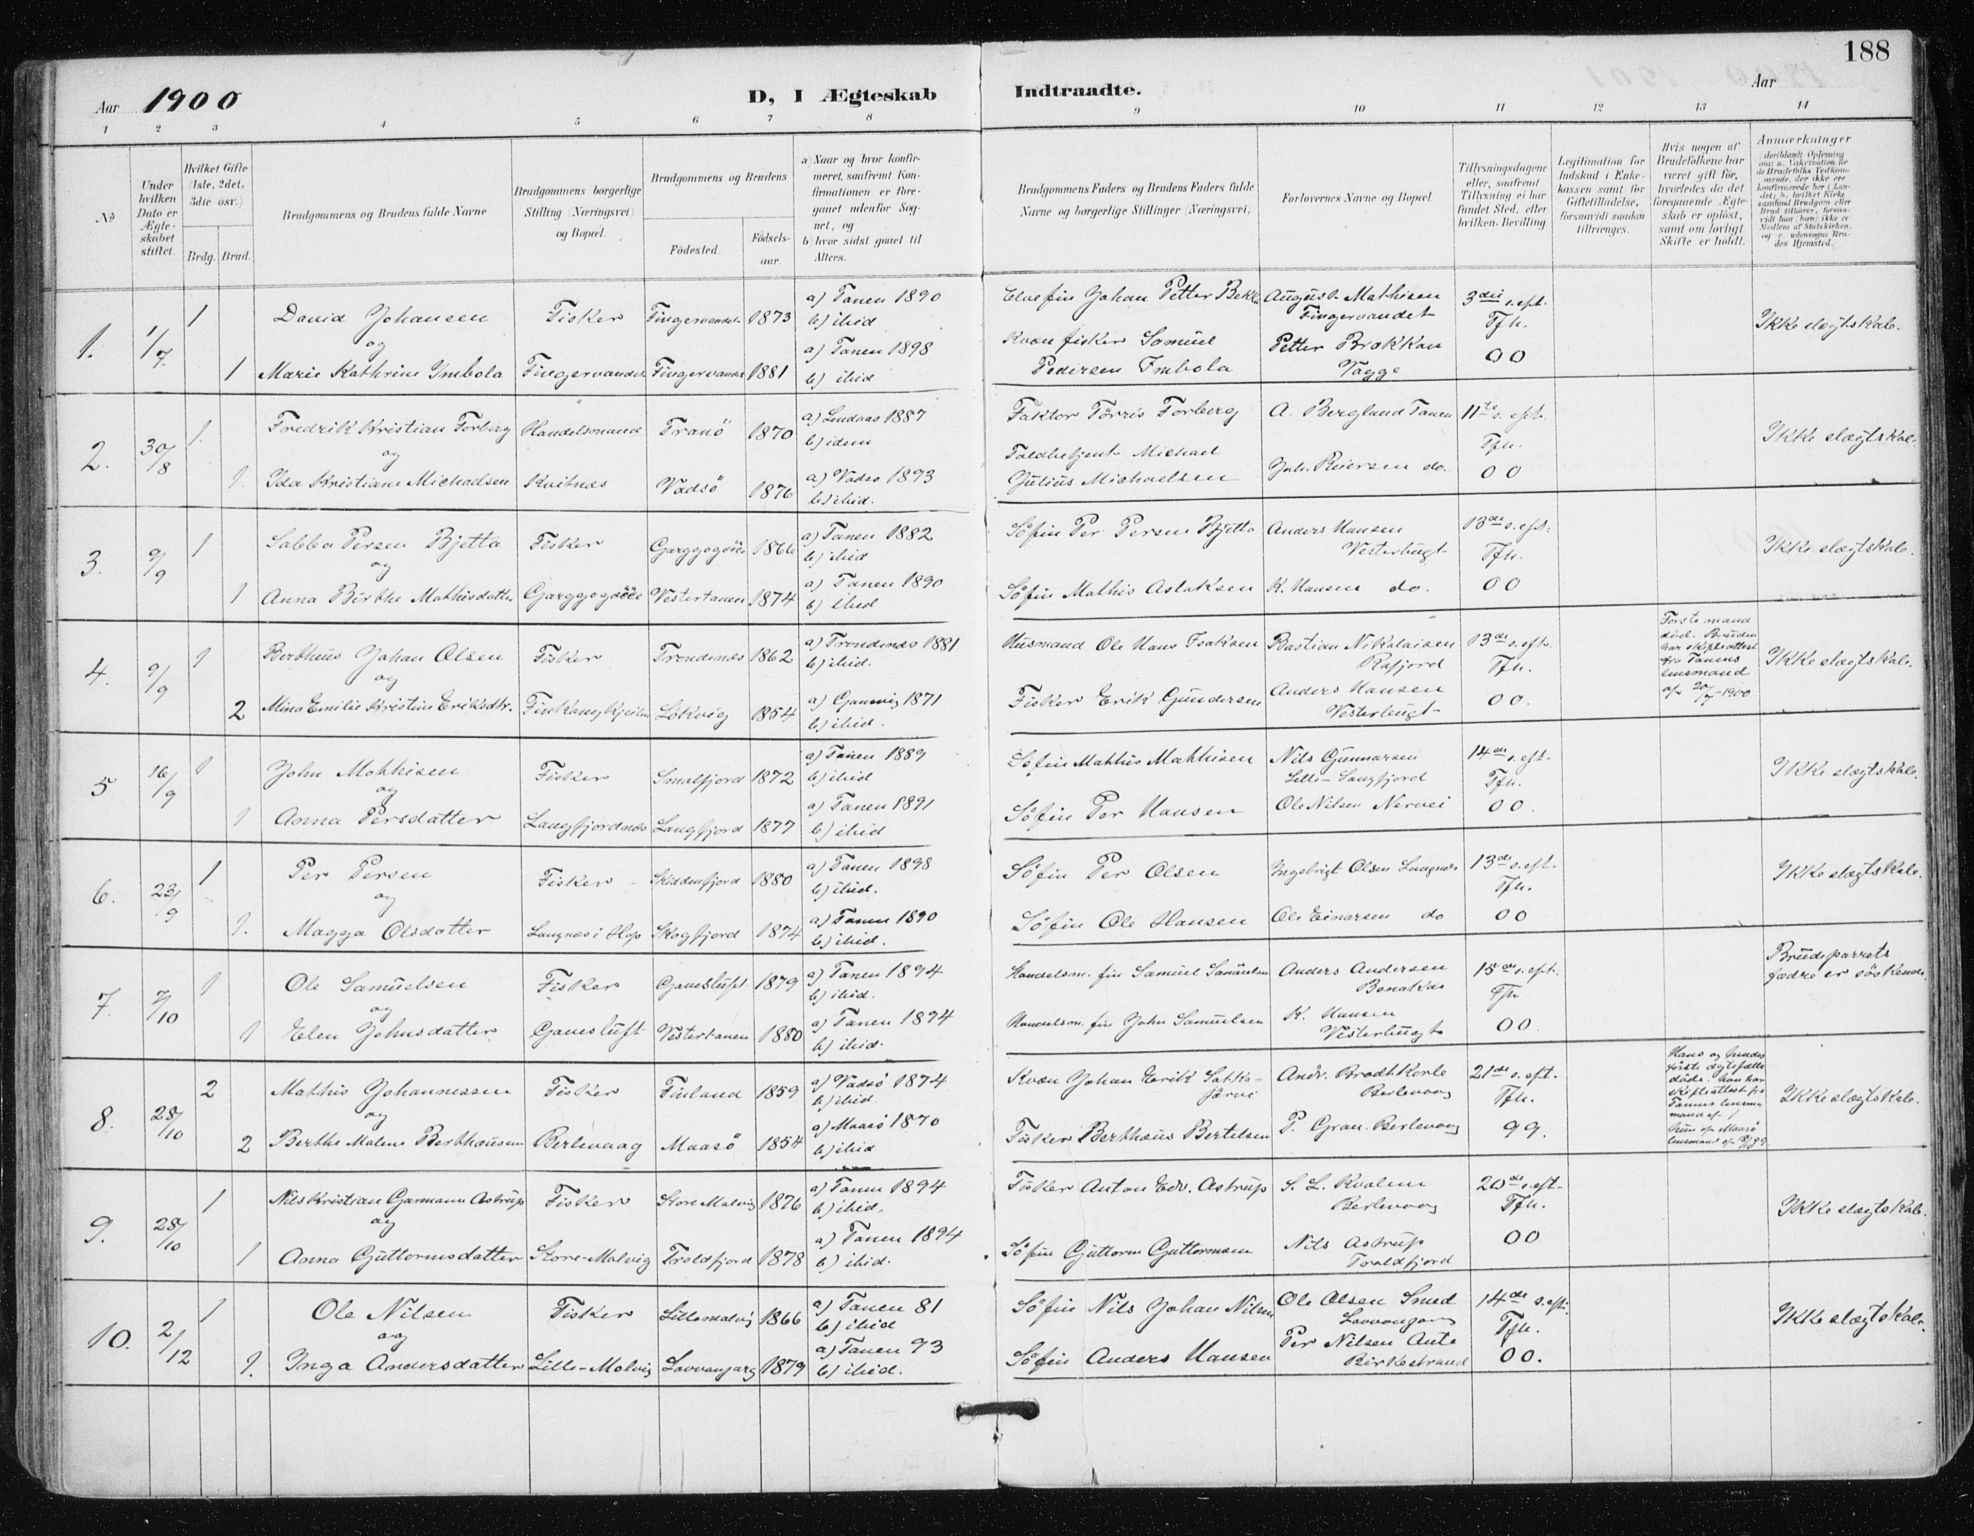 188
Aar 1900
D, I Ægteskab Indtraadte.
Aar
1 2 3 4 5 6 7 8 9 10 11 12 13 14
No
Under hvilken Dato er Ægteskabet stiftet.
Hvilket Gifte (1ste, 2det, 3die osv.)
Brdg. Brud.
Brudgommens og Brudens fulde Navne
Brudgommens borgerlige Stilling (Næringsvei) og Bopæl.
Brudgommens og Brudens
Fødested. Fødselsaar.
a) Naar og hvor konfirmeret, saafremt Konfirmationen er foregaaet udenfor Sognet, og
b) hvor sidst gaaet til Alters.
Brudgommens Faders og Brudens Faders fulde Navne og borgerlige Stillinger (Næringsvei)
Forlovernes Navne og Bopæl.
Tillysningsdagene eller, saafremt Tillysning ei har fundet Sted, efter hvilken Bevilling.
Legitimation for Indskud i Enkekassen samt for Giftetilladelse, forsaavidt saadan tiltrænges.
Hvis nogen af Brudefolkene har været gift før, hvorledes da det foregaaende Ægteskab er opløst, samt om lovligt Skifte er holdt.
Anmærkninger
1. 1/7 1 David Johansen Fisker Fingervandet 1873 a) Tanen 1890 b) ibid Elvefin Johan Petter August Mathisen Fingervandet 3die s. ept. Tfh. 00 Ikke slægtskab.
og
1 Marie Kathrine Imbola Fingervandet Fingervandet 1881 a) Tanen 1898 b) ibid Kvæn fisker Samuel Pedersen Imbola Petter Brakkan Vagge
2. 30/8 1. Fredrik Kristian Forberg Handelsmand Tranö 1870 a) Lendaas 1887 b) idem Faktor Törris Forberg A. Bergland Tanen 11te s. ept. Tfh. 00 Ikke slægtskab.
og
1. Ida Kristiane Michaelsen Kvitnes Vadsö 1876 a) Vadsö 1893 b) ibid. Toldbetjent Michael Julius Michaelsen Joh. Reiersen do.
3. 9/9 1 Sabba Persen Bjetta Fisker 1866 a) Tanen 1882 b) ibid Söfin Per Persen Bjetta Anders Hansen Vesterbugt 13de s. ept. Tfh. 00 Ikke slægtskab.
og
1 Anna Birthe Mathisdatter Vestertanen 1874 a) Tanen 1890 b) ibid Söfin Mathis Aslaksen K. Hansen do.
4. 9/9 1 Bertheus Johan Olsen Fisker Trondenes 1862 a) Trondenes 1881 b) ibid. Husmand Ole Hans Isaksen Bastian Nikolaisen Rafjord 13de s. ept. Tfh. 00. Første mand död. Bruden har skifteattest fra Tanens lensmand af 20/7-1900 Ikke slægtskab.
og
2 Mina Emilie Kristine Eriksdtr. Lökvig 1854 a) Gamvig 1871 b) ibid. Fisker Erik Gundersen Anders Hansen Vesterbugt
5 16/9 1 John Mathisen Fisker Smalfjord 1872 a) Tanen 1889 b) ibid Söfin Mathis Mathisen Nils Gunnarsen Lille-Langfjord 14de s. ept. Tfh. 00. Ikke slægtskab.
og
1 Anna Persdatter Langfjordnes Langfjord 1877 a) Tanen 1891 b) ibid Söfin Per Hansen Ole Nilsen Nervei
6. 23/9 1 Per Persen Fisker Skiddenfjord 1880 a) Tanen 1898 b) ibid. Söfin Per Olsen Ingebrigt Olsen Langnæs 13de s. ept. Tfh. 00 Ikke slægtskab.
og
1. Magga Olsdatter Langnæs i Hop Skogfjord 1874 a) Tanen 1890 b) ibid. Söfin Ole Hansen Ole Einarsen do
7. 7/10 1 Ole Samuelsen Fisker Gavesluft 1879 a) Tanen 1894 b) ibid. Handelsm. fin Samuel Samuelsen Anders Andersen Bonakas 15de s. ept. Tfh. 00. Brudeparrets fædre er söskende.
og
1 Elen Johnsdatter Gavesluft Vestertanen 1880 a) Tanen 1894 b) ibid. Handelsm. fin John Samuelsen K. Hansen Vesterbugt
8. 28/10 2 Mathis Johannessen Fisker Finland 1859 a) Vadsö 1874 b) ibid. Kvæn Johan Erik Andr. Brodtkorb Berlevaag 21de s. ept. Tfh. 99. Hans og hendes første ægtefælle döde. Han har skifteattest fra Tanens lensmand af Ikke slægtskab.
og
2 Berthe Malene Berthausen Berlevaag Maasö 1854 a) Maasö 1870 b) ibid Fisker Berthæus Bertelsen P. Gran. Berlevaag
9. 28/10 1 Nils Kristian Garmann Astrup Fisker Store Molvig 1876 a) Tanen 1894 b) ibid. Fisker Anton Edv. Astrup S. L. Kvalnes Berlevaag 20de s. ept. Tfh. 00 Ikke slægtskab.
og
1 Anna Guttormsdatter Store-Molvig Troldfjord 1878 a) Tanen 1894 b) ibid. Söfin Guttorm Guttormsen Nils Astrup Troldfjord
10. 2/12 1 Ole Nilsen Fisker Lillemolvig 1866 a) Tanen 81 b) ibid Söfin Nils Johan Nilsen Ole Olsen Smed Lavvonjarg 14de s. ept. Tfh. 00. Ikke slægtskab.
og
1. Inga Andersdatter Lille-Molvig Lavvonjarg 1879 a) Tanen 93 b) ibid. Söfin Anders Hansen Per Nilsen Aute Birkestrand